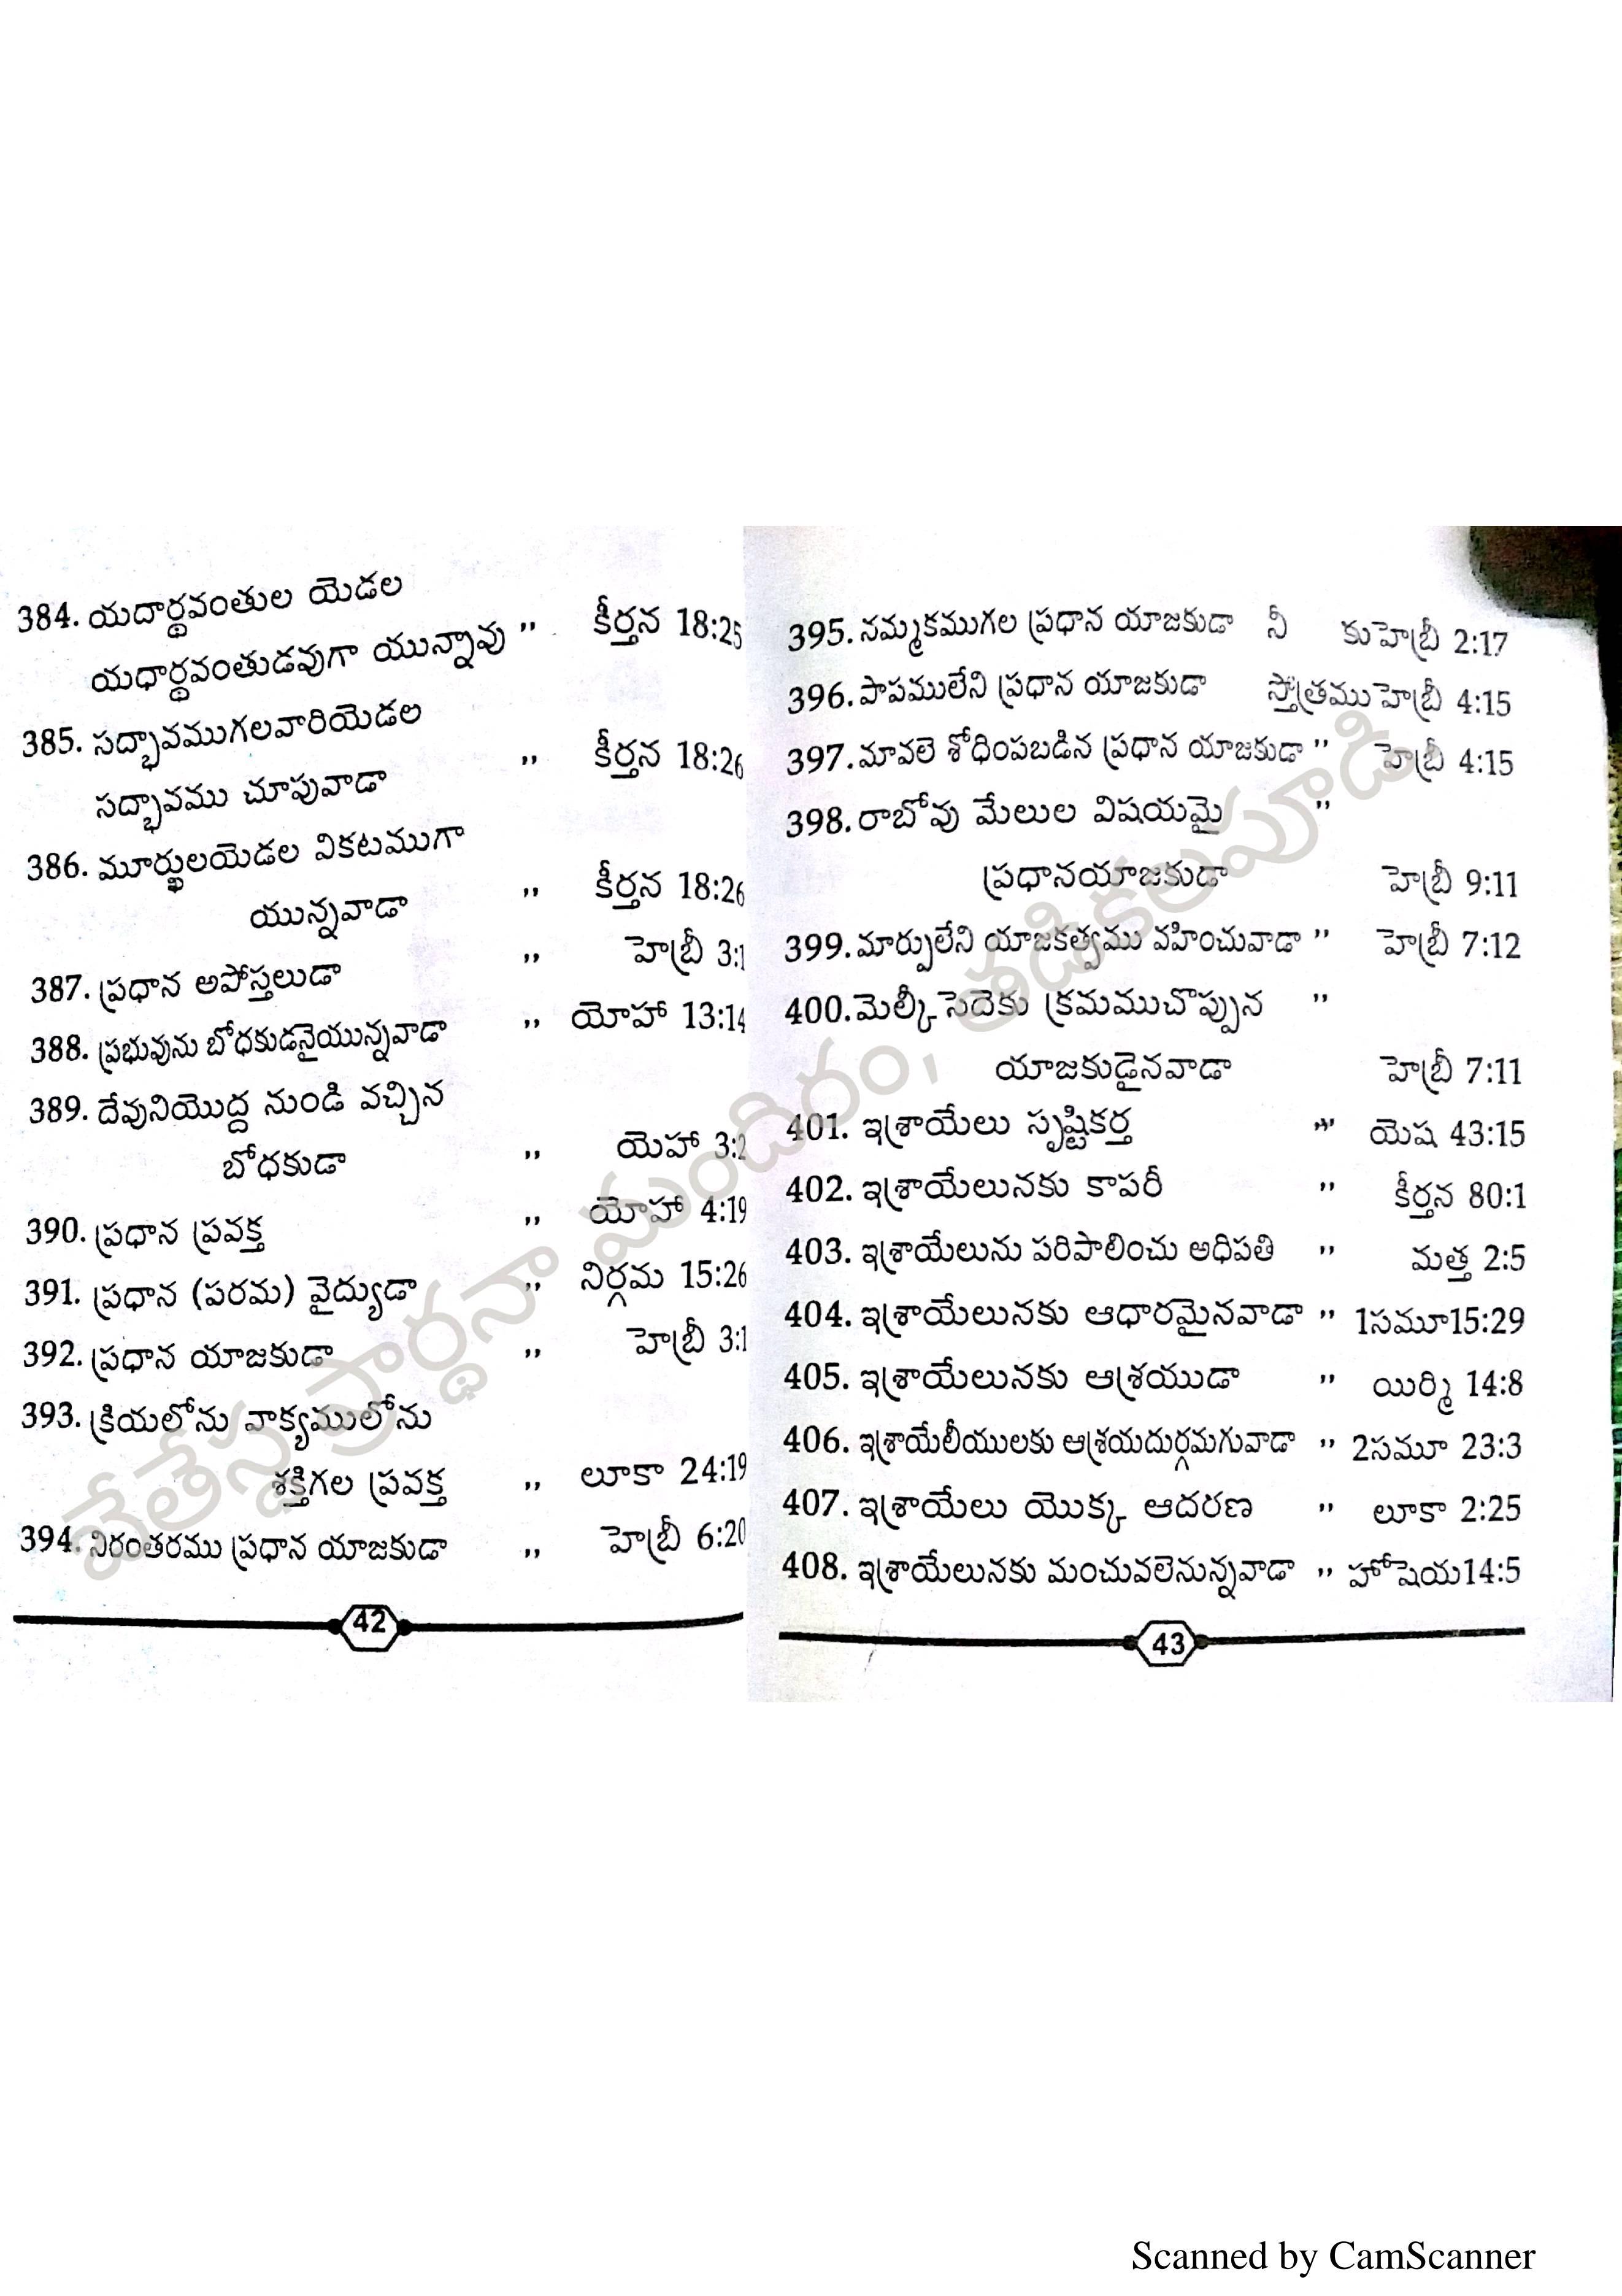 384. యదార్థవంతుల యెడల
యధార్థవంతుడవుగా యున్నావు ,, కీర్తన 18:25
385. సద్భావముగలవారియెడల
సద్భావము చూపువాడా ,, కీర్తన 18:26
386. మూర్ఖులయెడల వికటముగా
యున్నవాడా ,, కీర్తన 18:26
387. ప్రధాన అపోస్తలుడా ,, హెబ్రీ 3:1
388. ప్రభువును బోధకుడనైయున్నవాడా ,, యోహా 13:14
389. దేవునియొద్ద నుండి వచ్చిన
బోధకుడా ,, యెహా 3:2
390. ప్రధాన ప్రవక్త ,, యోహా 4:19
391. ప్రధాన (పరమ) వైద్యుడా ,, నిర్గమ 15:26
392. ప్రధాన యాజకుడా ,, హెబ్రీ 3:1
393. క్రియలోను వాక్యములోను
శక్తిగల ప్రవక్త ,, లూకా 24:19
394. నిరంతరము ప్రధాన యాజకుడా ,, హెబ్రీ 6:20
42
395. నమ్మకముగల ప్రధాన యాజకుడా నీ కు హెబ్రీ 2:17
396. పాపములేని ప్రధాన యాజకుడా స్తోత్రము హెబ్రీ 4:15
397. మావలె శోధింపబడిన ప్రధాన యాజకుడా ,, హెబ్రీ 4:15
398. రాబోవు మేలుల విషయమై ,,
ప్రధానయాజకుడా హెబ్రీ 9:11
399. మార్పులేని యాజకత్వము వహించువాడా ,, హెబ్రీ 7:12
400. మెల్కీసెదెకు క్రమముచొప్పున ,,
యాజకుడైనవాడా హెబ్రీ 7:11
401. ఇశ్రాయేలు సృష్టికర్త ,, యెష 43:15
402. ఇశ్రాయేలునకు కాపరీ ,, కీర్తన 80:1
403. ఇశ్రాయేలును పరిపాలించు అధిపతి ,, మత్త 2:5
404. ఇశ్రాయేలునకు ఆధారమైనవాడా ,, 1సమూ15:29
405. ఇశ్రాయేలునకు ఆశ్రయుడా ,, యిర్మి 14:8
406. ఇశ్రాయేలీయులకు ఆశ్రయదుర్గమగువాడా ,, 2సమూ 23:3
407. ఇశ్రాయేలు యొక్క ఆదరణ ,, లూకా 2:25
408. ఇశ్రాయేలునకు మంచువలెనున్నవాడా ,, హోషెయ14:5
43
బేతేస్థ ప్రార్థనా మందిరం, తడికలపూడి
Scanned by CamScanner